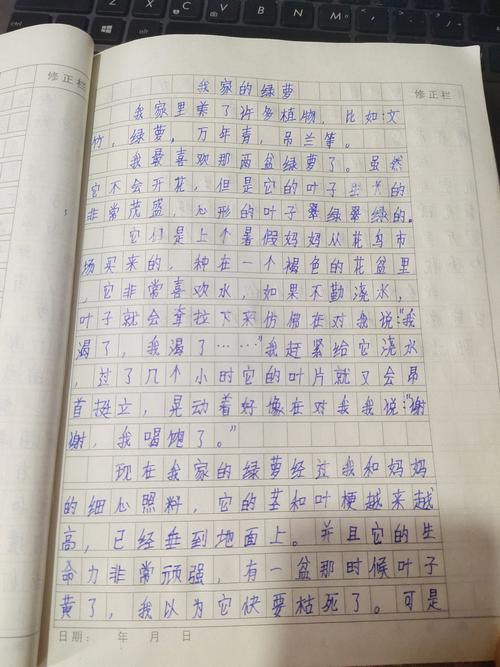 修正栏
修正栏
我家的绿萝
我家里养了许多植物，比如:文
竹，绿萝，万年青，吊兰等。
我最喜欢那两盆绿萝了。虽然
它不会开花，但是它的叶子的
非常茂盛，心形的叶子翠绿翠绿的。
它们是上个暑假妈妈从花鸟市
场买来的，种在一个褐色的花盆里
，它非常喜欢水，如果不勤浇水，
叶子就会耷拉下来仿佛在对我说:"我
渴了，我渴了……"我赶紧给它浇水
，过了几个小时它的叶片就又会昂
首挺立，晃动着好像在对我我说:"谢
谢，我喝饱了。"
现在我家的绿萝经过我和妈妈
的细心照料，它的茎和叶梗越来越
高，已经垂到地面上。并且它的生
命力非常顽强，有一盆那时候叶子
黄了，我以为它快要枯死了。可是
日期: 年 月 日